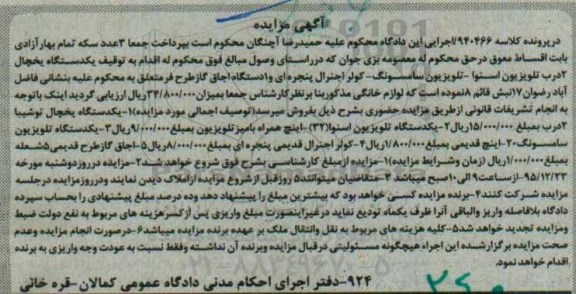 آگهی مزایده
درپرونده کلاسه ۹۴۰۴۶۶/اجرایی این دادگاه محکوم علیه حمیدرضا آچنگان محکوم است بپرداخت جمعا ۳عدد سکه تمام بهارآزادی
بابت اقساط معوق درحق محکوم له معصومه بزی جوان که درراستای وصول مبالغ فوق محکوم له اقدام به توقیف یکدستگاه یخچال
۲درب تلویزیون اسنوا -تلویزیون سامسونگ- کولر اجنرال پنجره ای وادستگاه اجاق گازطرح فرمتعلق به محکوم علیه بنشانی فاضل
آباد رضوان ۱۷نبش قائم ۸نموده است که لوازم خانگی مذکوربنا برنظرکارشناس جمعا بمیزان ۳۴/۸۰۰/۰۰۰ریال ارزیابی گردید اینک باتوجه
به انجام تشریفات قانونی ازطریق مزایده حضوری بشرح ذیل بفروش میرسد(توصیف اجمالی مورد مزایده)۱-یکدستگاه یخچال توشیبا
۲درب بمبلغ ۱۵/۰۰۰/۰۰۰ریال۲-یکدستگاه تلویزیون اسنوا(۳۲)-اینچ همراه بامیزتلویزیون بمبلغ۹/۰۰۰/۰۰۰ریال۳-یکدستگاه تلویزیون
سامسونگ-۲۰اینچ قدیمی بمبلغ۱/۸۰۰/۰۰۰ریال۴-کولر اجنرال قدیمی پنجره ای بمبلغ۸/۰۰۰/۰۰۰ریال۵-اجاق گازطرح قدیمی ۵شعله
بمبلغ۱/۰۰۰/۰۰۰ریال (زمان وشرایط مزایده)۱-مزایده ازمبلغ کارشناسی بشرح فوق شروع خواهدشد۲-مزایده درروزدوشنبه مورخه
۹۵/۱۲/۲۳-ازساعت۹ الی ۱۰صبح میباشد ۳-متقاضیان میتوانند۵ روزقبل ازشروع مزایده ازاملاک دیدن نمایند ودرروزمزایده درجلسه
مزایده شرکت کنند۴-برنده مزایده کسی خواهد بود که بیشترین مبلغ را پیشنهاد دهد وده درصد مبلغ پیشنهادی را بحساب سپرده
دادگاه بلافاصله واریز والباقی آنرا ظرف یکماه تودیع نماید درغیراینصورت مبلغ واریزی پس ازکسرهزینه های مربوط به نفع دولت ضبط
ومزایده تجدید خواهد شد۵-کلیه هزینه های مربوط به نقل وانتقال ملک بر عهده برنده مزایده میباشد۶-درصورت انجام مزایده وعدم
صحت مزایده برگزارشده این اجراء هیچگونه مسئولیتی درقبال مزایده وبرنده آن نداشته وفقط نسبت به عودت وجه واریزی به برنده
اقدام خواهد نمود.
۹۲۴-دفتر اجرای احکام مدنی دادگاه عمومی کمالان-قره خانی